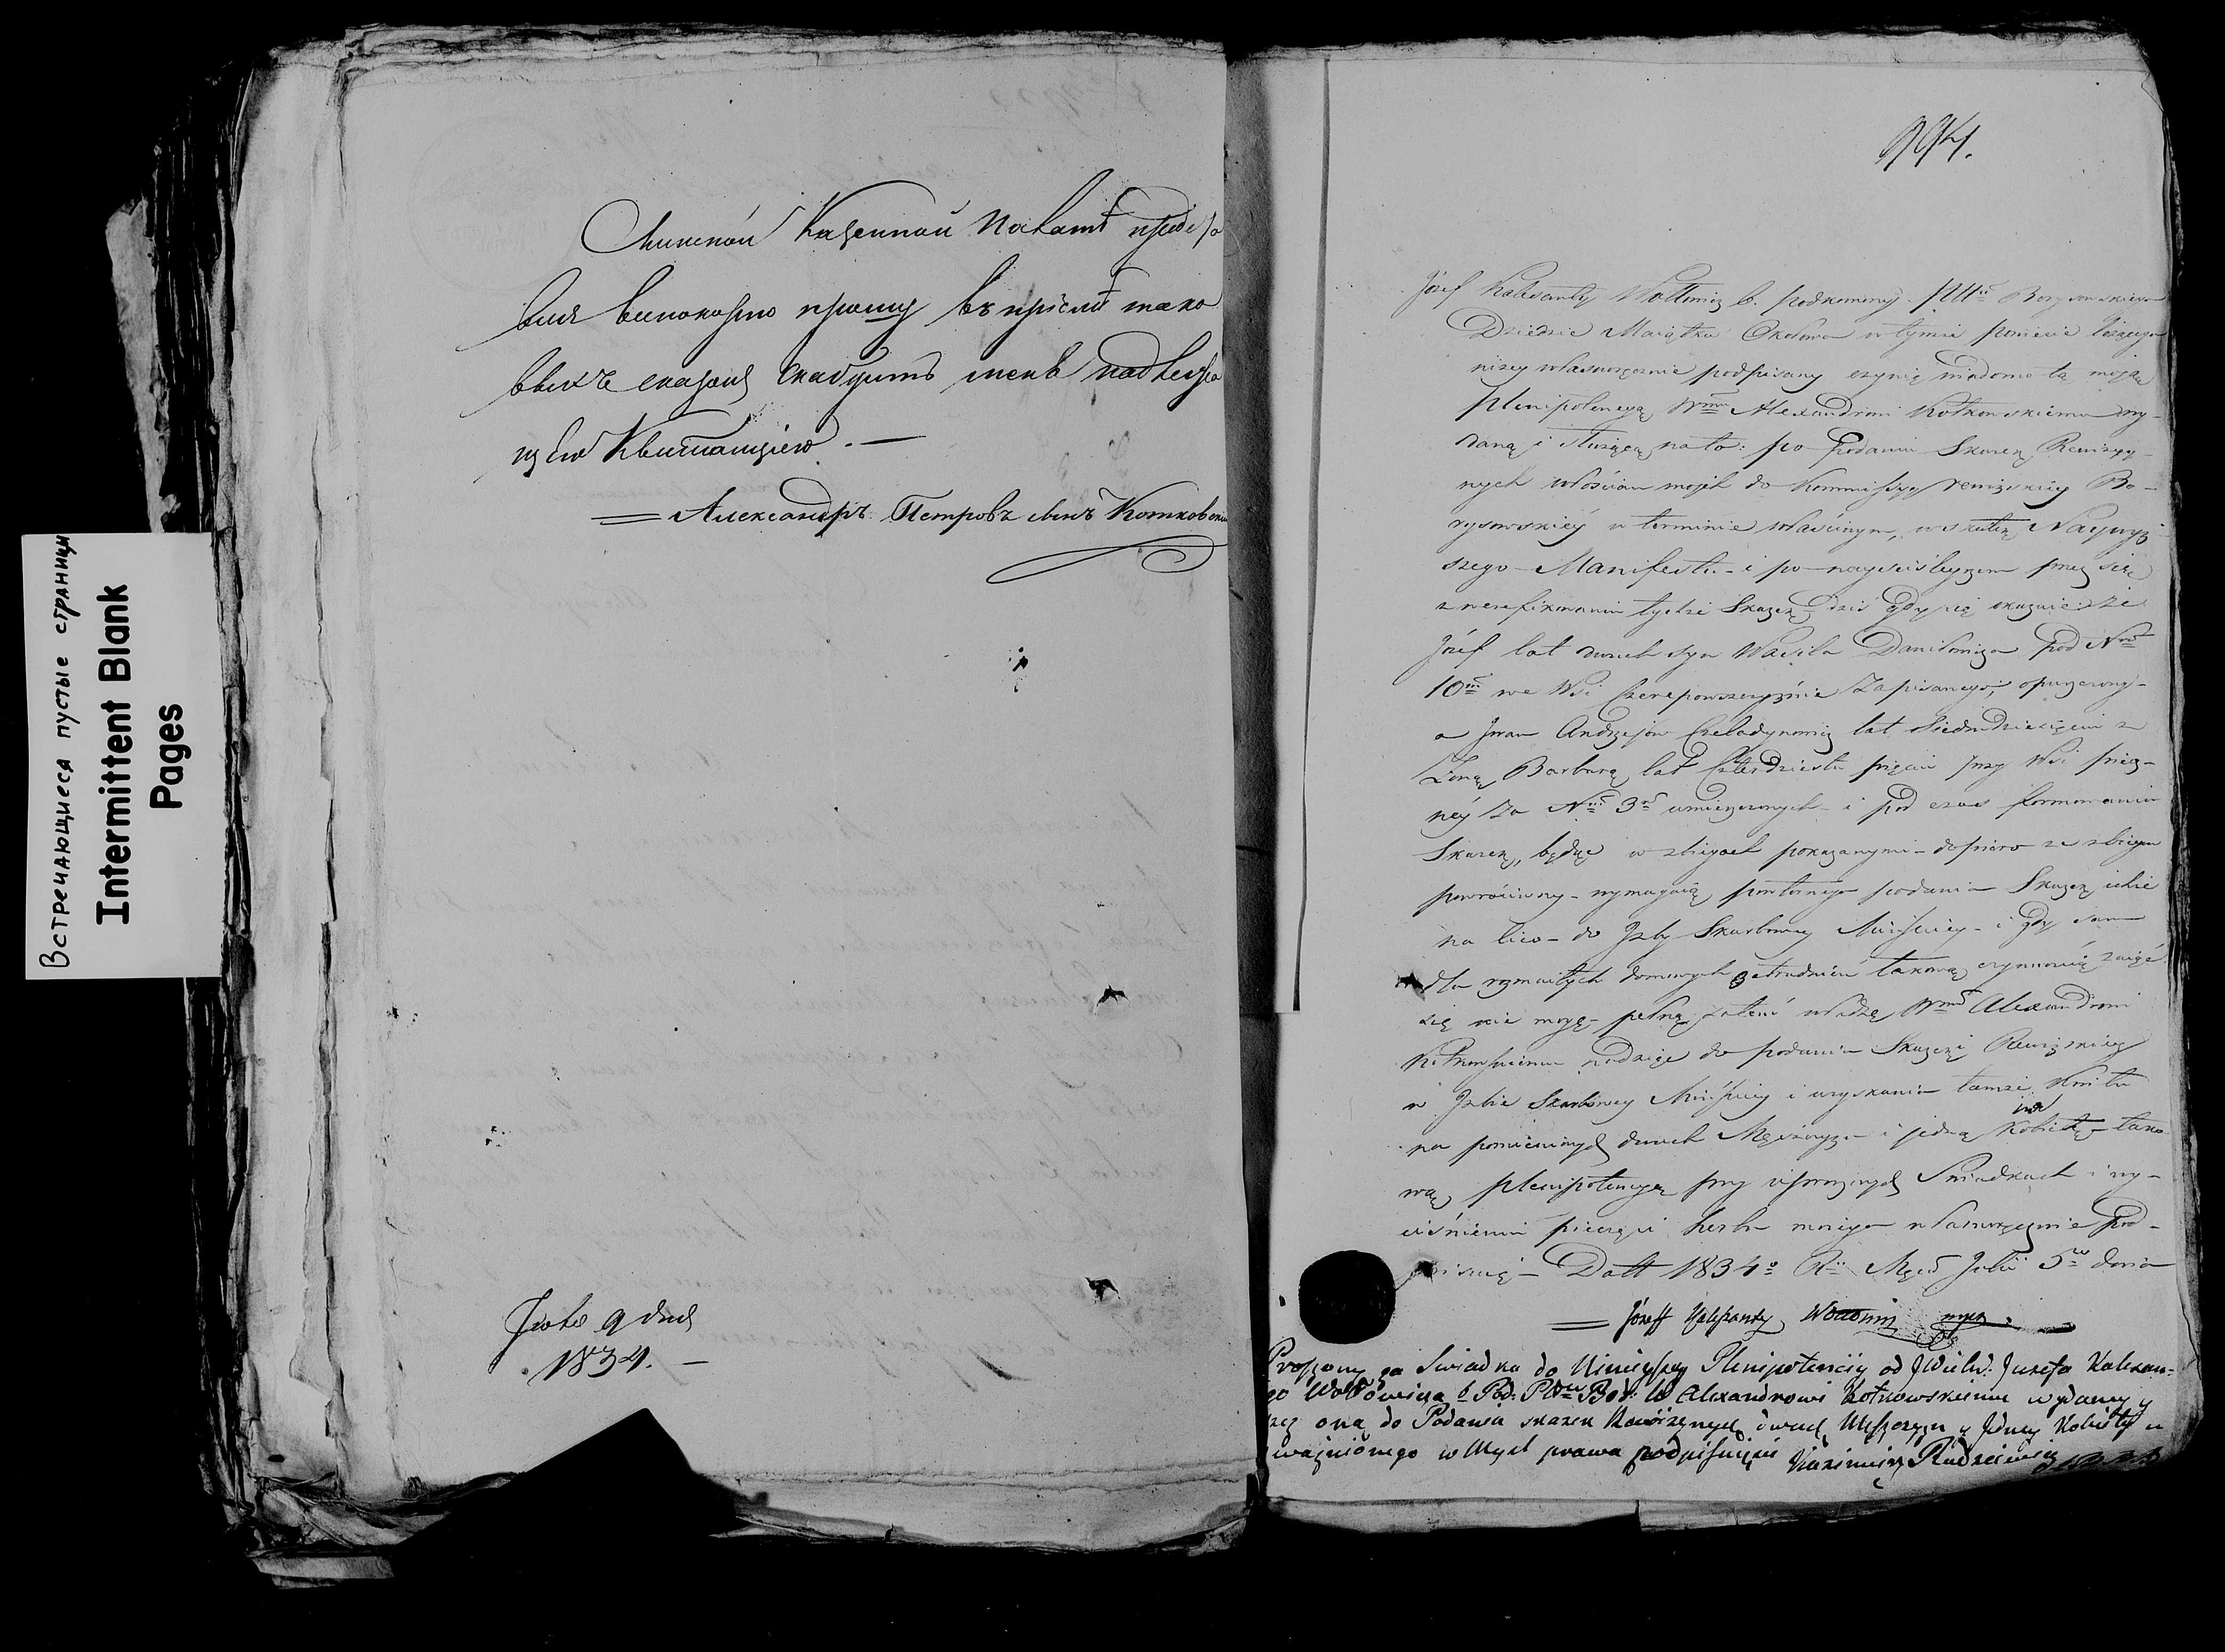 Встречающиеся пустые страницы
Intermittent Blank
Pages
Минской Казенной Палатѣ
всепокорно прошу въ пріемѣ тако
выхъ сказокъ снабдить меня надлежа
щею Квитанціею. —
= Александръ Петровъ сынъ Котковскій
Іюля 9 дня
1834. —
994.
Józef Kalesanty Wołłowicz b. podkomorzy Borysowskiego
Dziedzic Maiątku Okołowa w tymże powiecie leżącego
niżey własnoręcznie podpisany czynię wiadomo tą moją
plenipotencyą Wmu Alexandrowi Kotkowskiemu wy-
daną i służącą na to: po podaniu Skazek Rewizyy-
nych włościan moich do Kommissyi rewizskiey Bo-
rysowskiéy w terminie właściwym, w skutek Naywyż-
szego Manifestu i po nayściśleyszem przez się
zweryfikowaniu tychże Skazek dziś gdy się okazuie że
Józef lat dwuch syn Wasila Daniłowicza pod Nrem
10m we Wsi zapisanego, opuszczony
a Jwan Andrzejow Czeladynowicz lat Siedmdziesięciu z
Żoną Barbarą lat Czterdziestu pięciu przy Wsi
za Nrem 3m umieszczonych i pod czas formowania
Skazek, będąc w zbiegach pokazanymi dopiero ze zbiegu
powróciwszy wymagaią powtórnego podania Skazek ichże
na lico do Jzby Skarbowey Mińskiey i gdy sam
dla rozmaitych domowych zatrudnień takową czynnością zaiąć
się nie mogę pełną zatém władzę Wmu Alexandrowi
Kotkowskiemu nadaię do podania Skazek Rewizskiey
w Jzbie Skarbowey Mińskiey i uzyskania tamże Kwitu
na pomienionych dwuch Męszczyzn i jedną Kobietę tako
wą plenipotencyą przy uproszonych Świadkach i wy-
ciśnieniu pieczęci herbu moiego własnoręcznie pod-
pisuię — Datt 1834o Rku Mca Julii 5o dnia
= Józeff Kalesanty Wołłowicz mp
Proszony za Swiadka do Ninieyszey Plenipotencij od JWielm. Juzefa Kalesan-
go Wołłowicza b Pod: Pttu Bor: W Alexandrowi Kotkowskiemu wydaney y
oną do Podania skazek dwuch Męszczyzn y Jedney Kobiéty u
ważnionego w Mysl prawa podpisuięsię Kazimierz Radziewicz